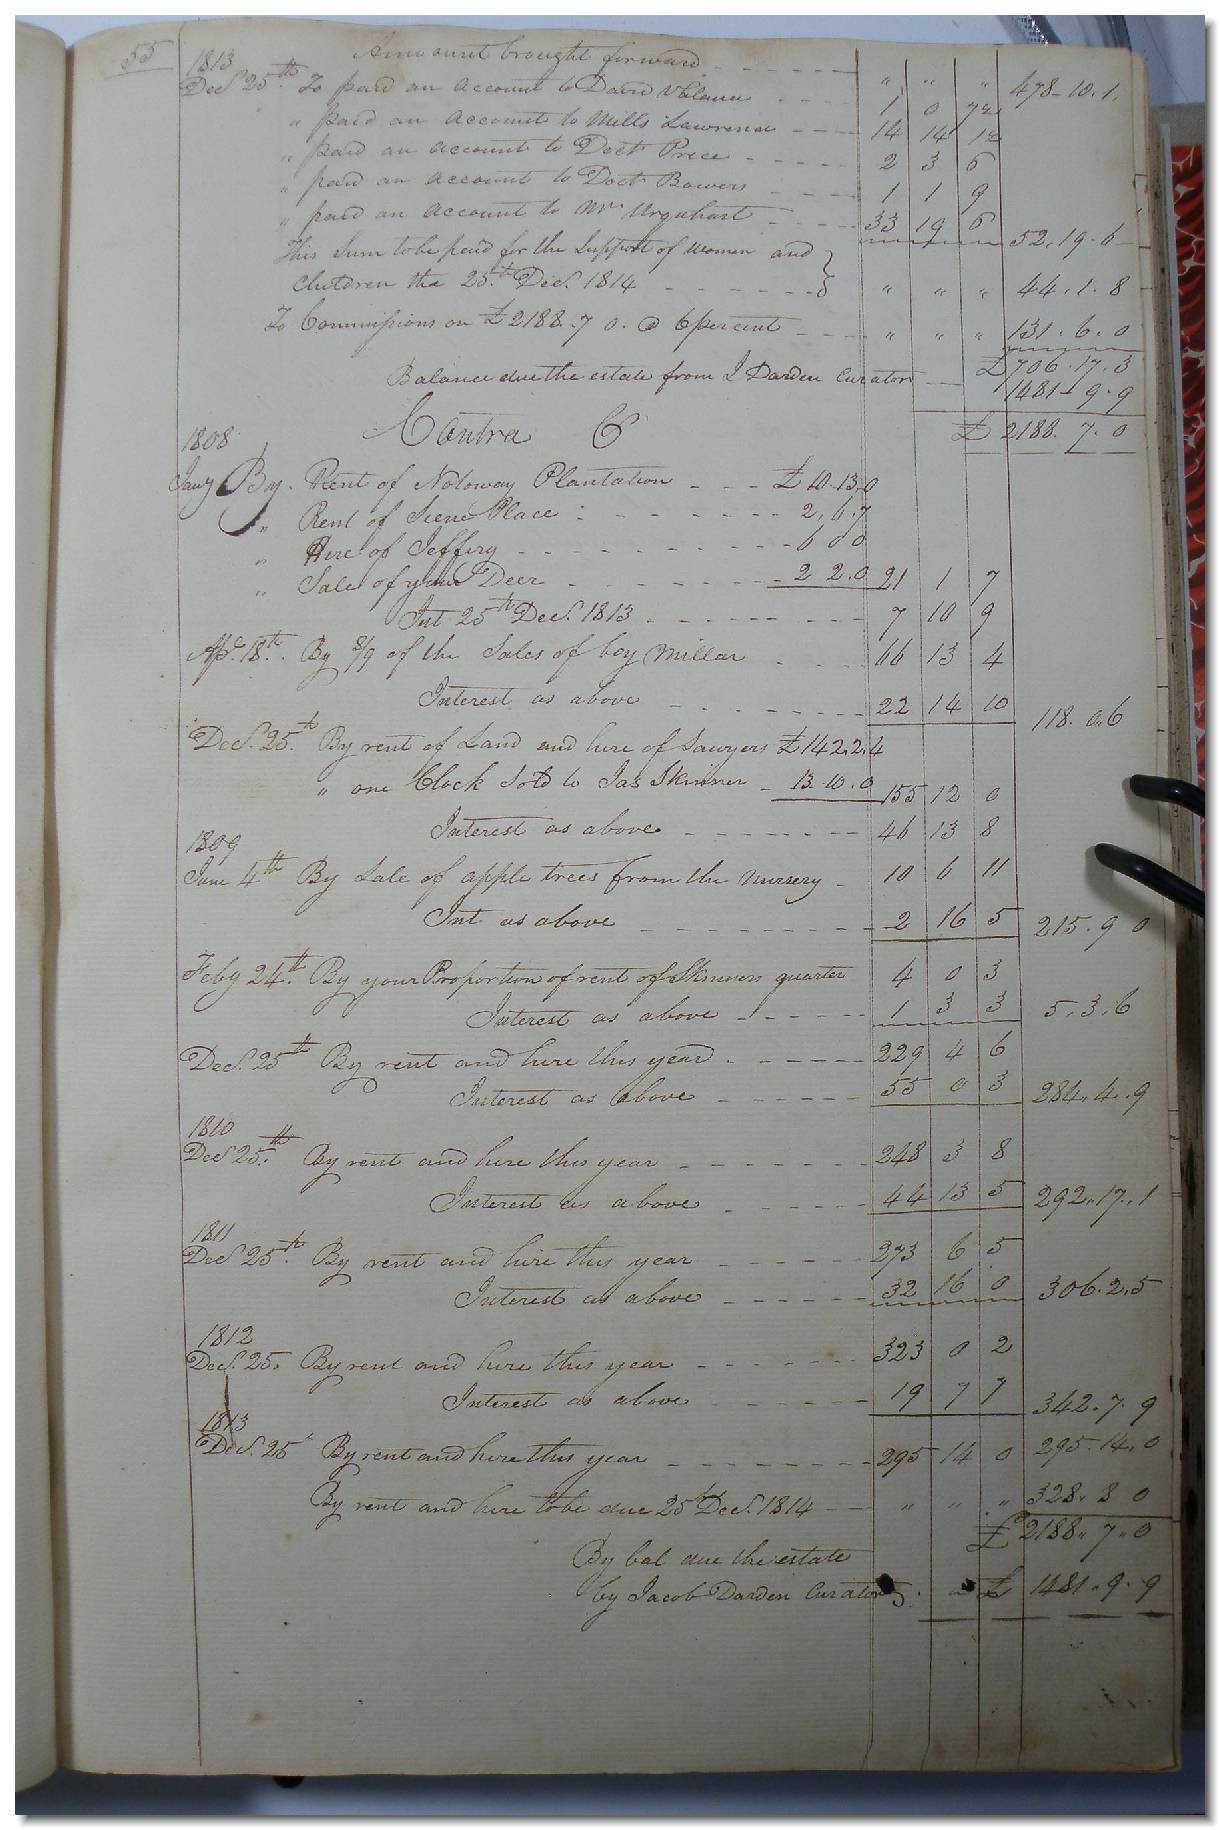 55
1813 Amount brought forward " " " 478-10.1.
Decr 25th. To paid an account to David 1 0 7½
" paid an account to Mills Lawrence 14 14 1½
" paid an account to Doctr Price 2 3 6
" paid an account to Doctr Bowers 1 1 9
" paid an account to Mr Urquhart 33 19 6 52.19.6
This Sum to be paid for the Support of women and
Children the 25th Decr. 1814 " " " 44.1.8
To Commissions on £2188.7 0. @ 6 percent " " " 131.6.0
£706.17.3
Balance due the estate from J Darden Curator 1481-9.9
£2188.7.0
Contra Cr
1808
Jany By. Rent of Notoway Plantation £10.13.0
" Rent of Place 2,6.7
" Hire of Jeffery 6 0 0
" Sale of your Deer 2 2.0 21 1 7
Int 25th Decr. 1813 7 10 9
Apl. 18th. By 8/9 of the Sales of boy Millar 66 13 4
Interest as above 22 14 10 118.0.6
Decr. 25th. By rent of Land and hire of Sawyers £142.2.4
" one Clock Sold to Jas Skinner 13.10.0 155 12 0
Interest as above 46 13 8
1809
June 4th By Sale of apple trees from the nursery 10 6 11
Int as above 2 16 5 215.9 0
Feby 24th. By your Proportion of rent of Skinners quarter 4 0 3
Interest as above 1 3 3 5.3.6
Decr. 25th By rent and hire this year 229 4 6
Interest as above 55 0 3 284.4.9
1810
Decr 25th. By rent and hire this year 248 3 8
Interest as above 44 13 5 292.17.1
1811
Decr 25th. By rent and hire this year 273 6 5
Interest as above 32 16 0 306.2.5
1812
Decr. 25. By rent and hire this year 323 0 2
Interest as above 19 7 7 342.7.9
1813
Decr. 25 By rent and hire this year 295 14 0 295.14.0
By rent and hire to be due 25th Decr. 1814 " " " 328.8 0
£2188.7.0
By bal due the estate
by Jacob Darden Curator £ 1481.9.9